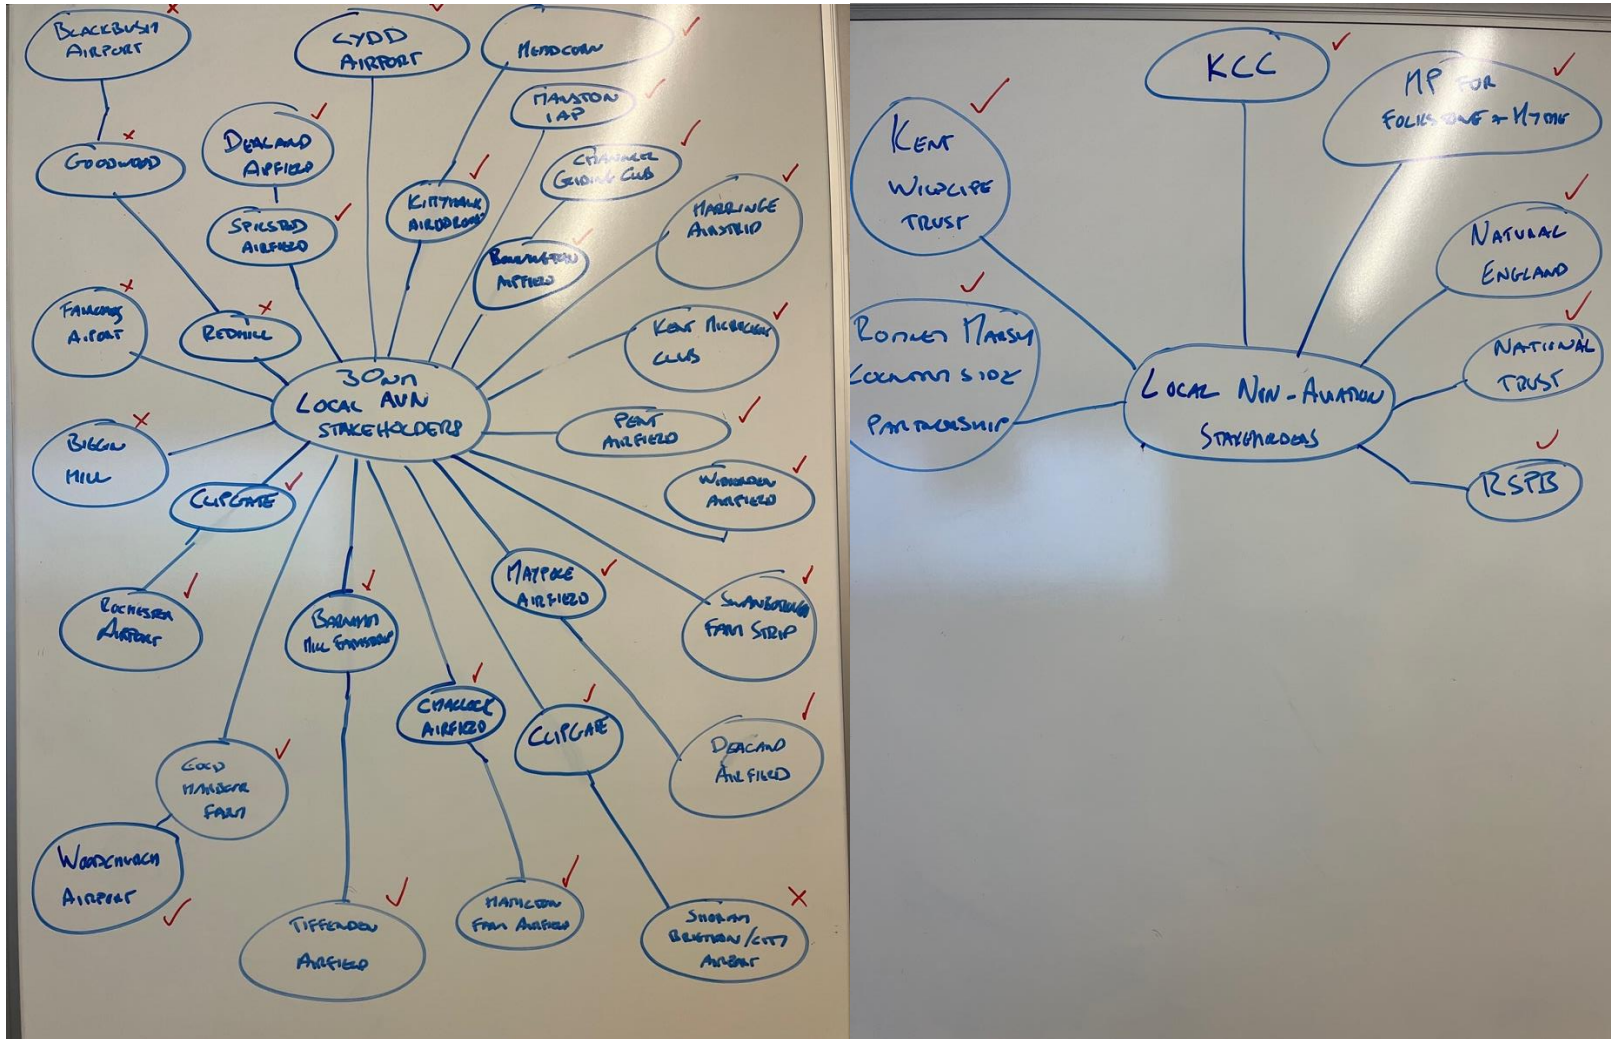 BLACKBUSH
AIRPORT
LYDD
AIRPORT
HEADCORN
MANSTON
IAP
GOODWOOD
DEALAND
AIRFIELD
CHANNEL
GLIDING CLUB
KITTYHAWK
AIRDROME
SPILSTED
AIRFIELD
HARRINGE
AIRSTRIP
BONNINGTON
AIRFIELD
AIRPORT
REDHILL
KENT MICROLIGHT
CLUB
30NM
LOCAL AVN
STAKEHOLDERS
PENT
AIRFIELD
BIGGIN
HILL
CLIPGATE
AIRFIELD
ROCHESTER
AIRPORT
BARHAM
HILL FARMSTRIP
MAYPOLE
AIRFIELD
SWANBOROUGH
FARM STRIP
CHALLOCK
AIRFIELD
CLIPGATE
DEALAND
AIRFIELD
COLD
HARBOUR
FARM
WOODCHURCH
AIRPORT
TIFFENDEN
AIRFIELD
HAMILTON
FARM AIRFIELD
SHORHAM
BRIGHTON/CITY
AIRPORT
KCC
MP FOR
FOLKSTONE + HYTHE
KENT
WILDLIFE
TRUST
NATURAL
ENGLAND
ROMNEY MARSH
COUNTRYSIDE
PARTNERSHIP
NATIONAL
TRUST
LOCAL NON-AVIATION
STAKEHOLDERS
RSPB